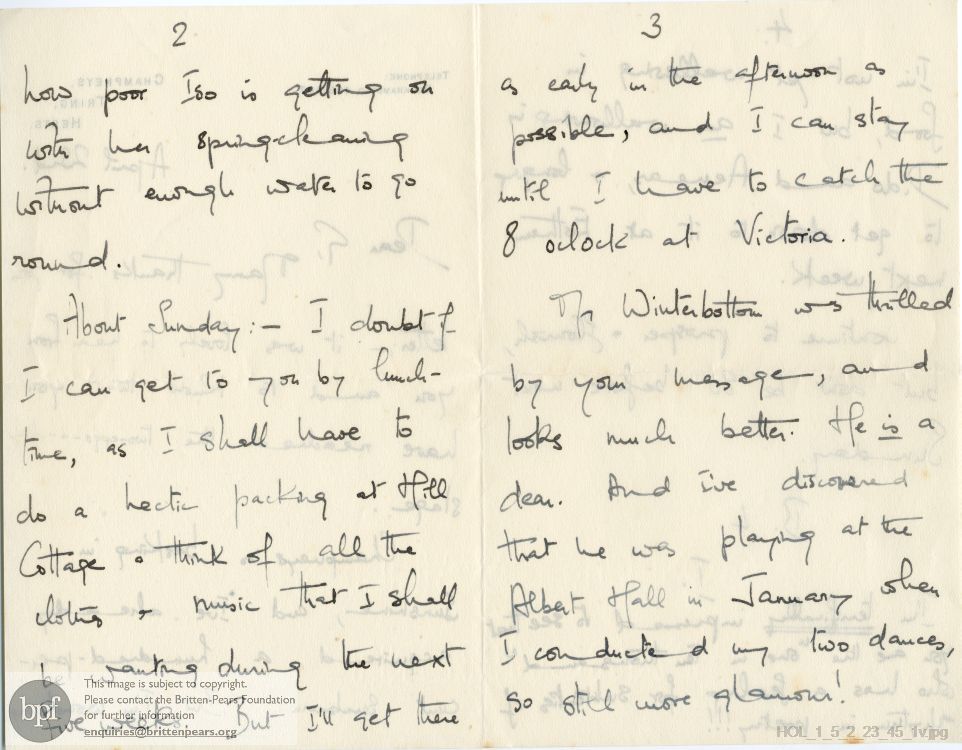 2
how poor Iso is getting on
with her spring-cleaning
without enough water to go
round.
About Sunday:– I doubt if
I can get to you by lunch-
time, as I shall have to
do a hectic packing at Hill
Cottage & think of all the
clothes & music that I shall
be wanting during the next
five weeks. But I'll get there
3
as early in the afternoon as
possible, and I can stay
until I have to catch the
8 oclock at Victoria.
Mr Winterbottom was thrilled
by your message, and
looks much better. He is a
dear. And I've discovered
that he was playing at the
Albert Hall in January when
I conducted my two dances,
so still more glamour!
bpf
This image is subject to copyright.
Please contact the Britten-Pears Foundation
for further information
enquiries@brittenpears.org
HOL_1_5_2_23_45_1v.jpg